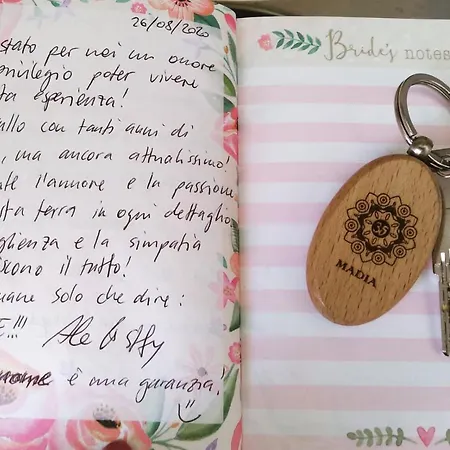 26/08/2020
stato per noi un onore
privilegio poter vivere
sta esperienza!
allo con tanti anni di
, ma ancora attualissimo!
l'amore e la passione
sta terra in ogni dettaglio
glienza e la simpatia
iscono il tutto!
mane solo che dire:
E!!!
è una garanzia!
Bride's notes
MADIA